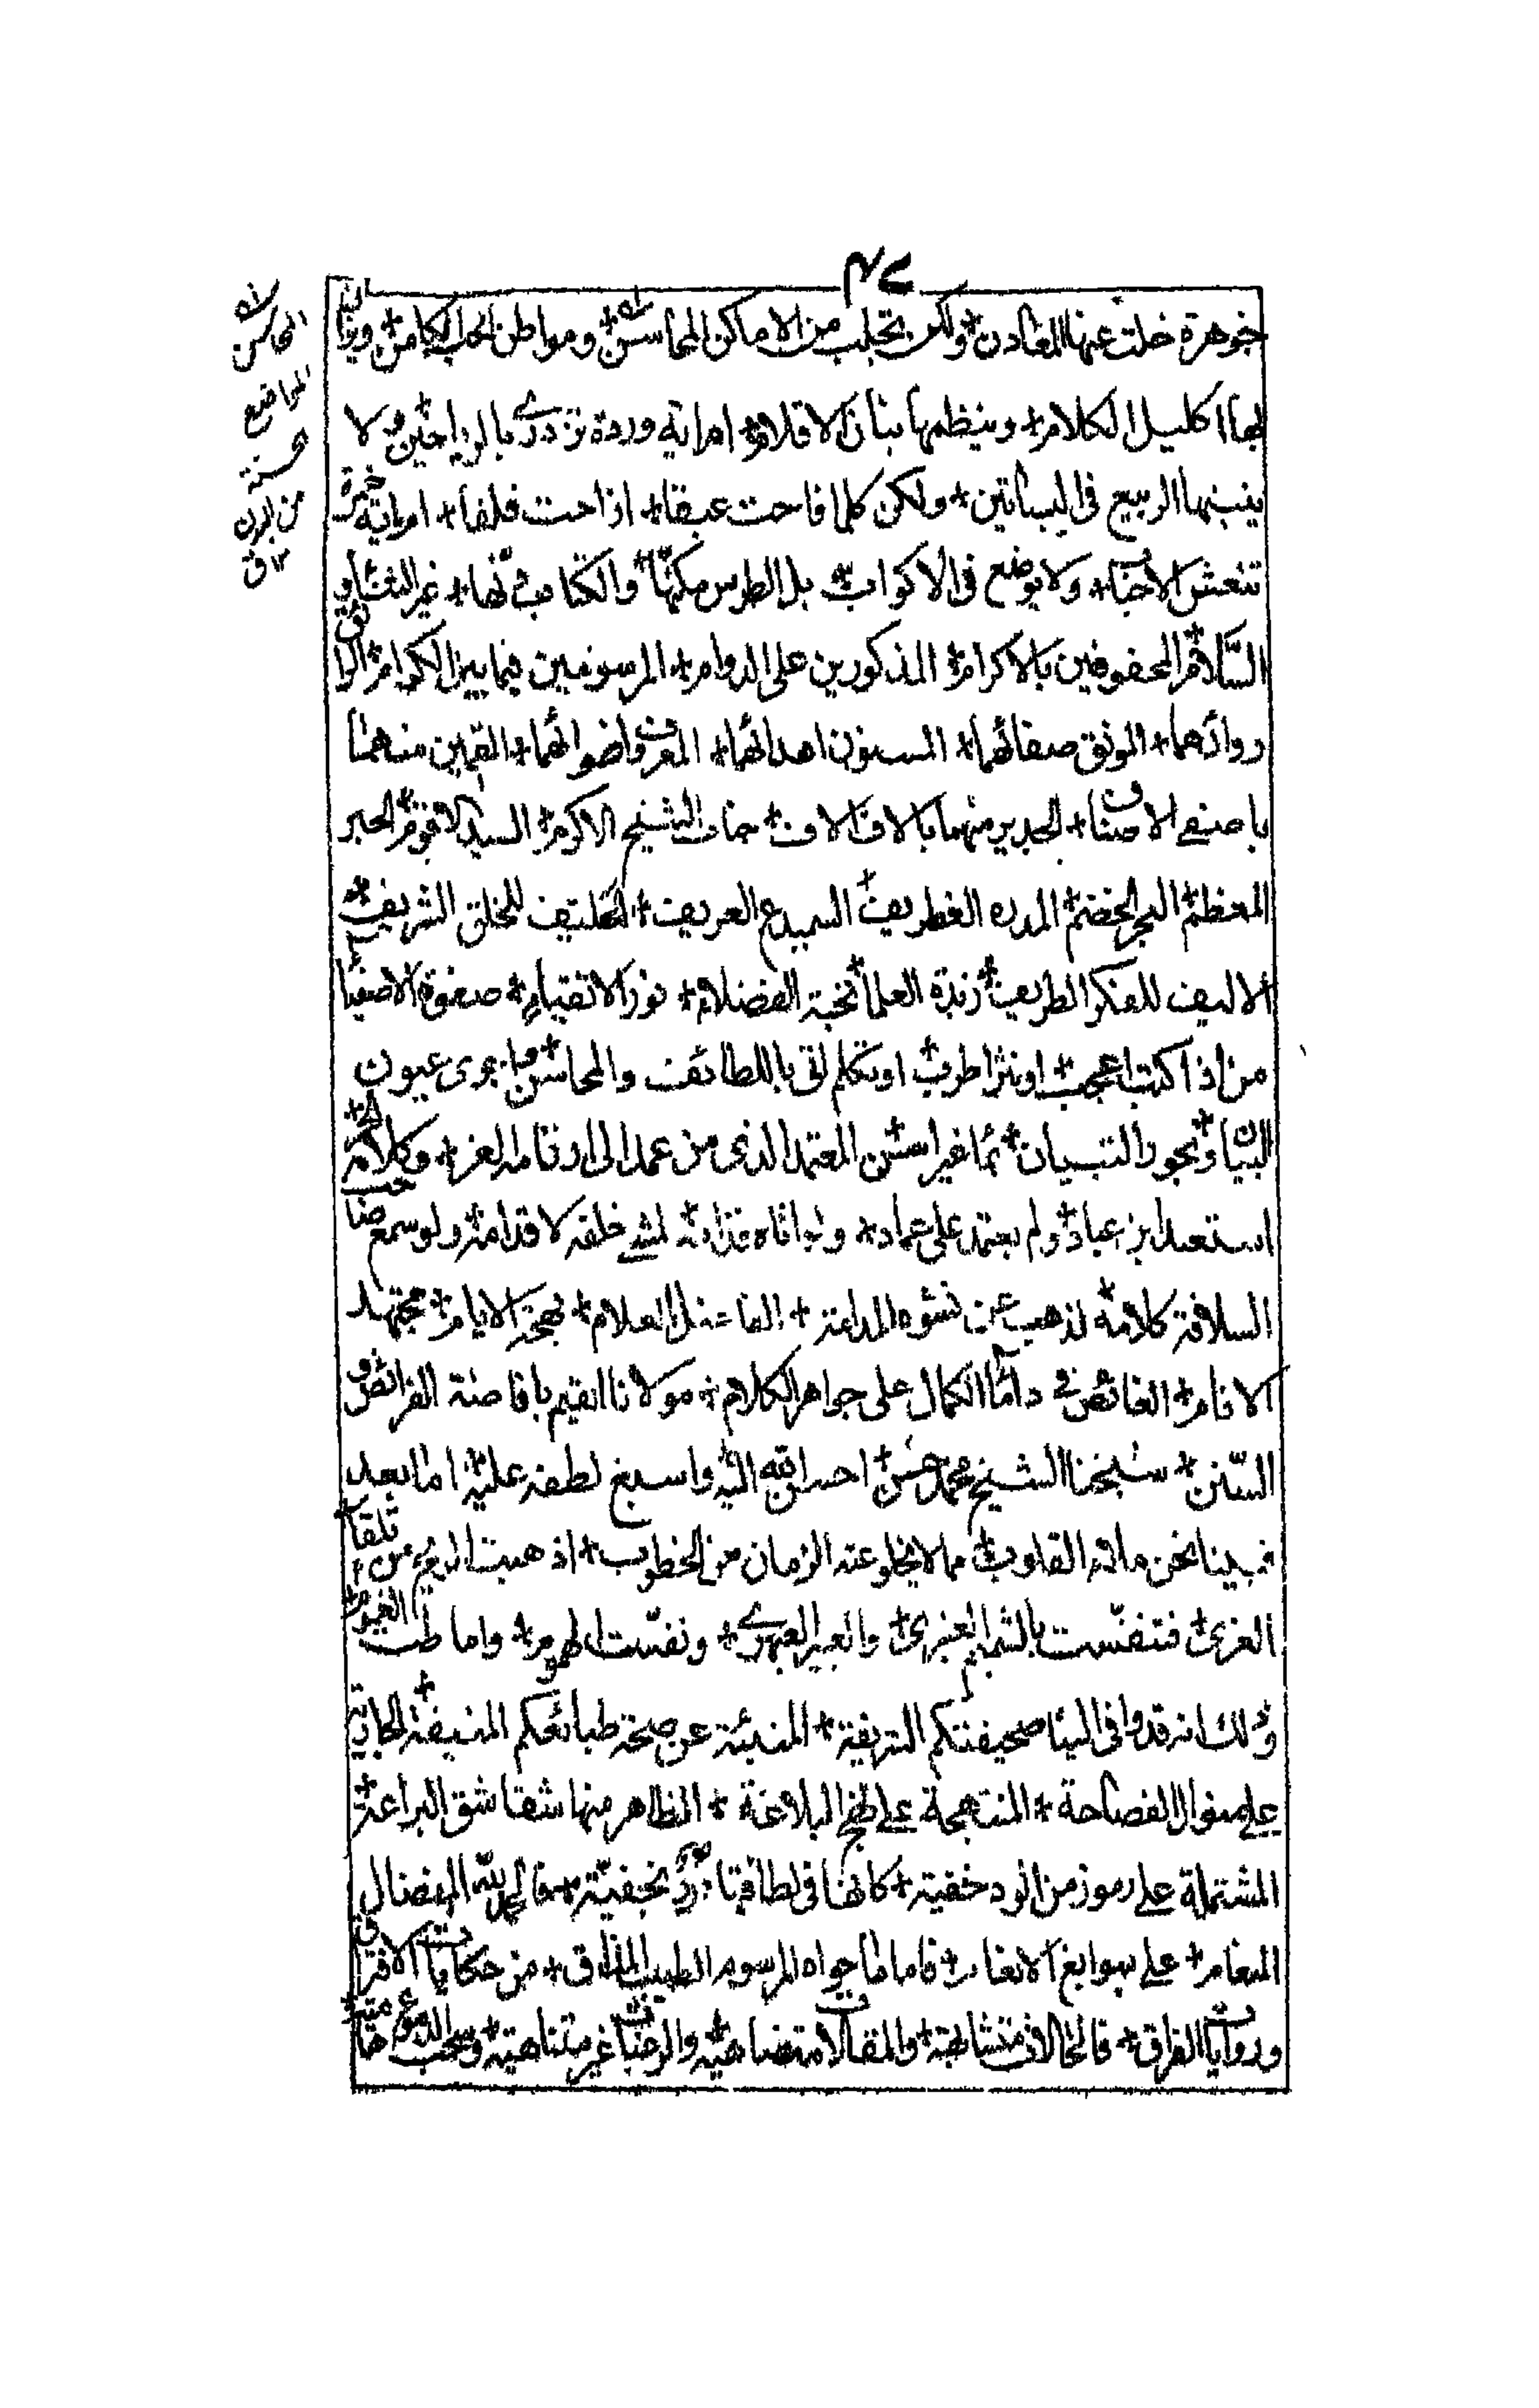 ٤٧
جوهرة خلت عنها المعادن + ولكن تجلب من الاماكن المحاسن + ومواطن الحب الكامن +
بها اكليل الكلام + وينظمها بنان الاقلام + ام اية وردة تزدرى بالرياحين + ولا
ينبتها الربيع فى البساتين + ولكن كلما فاحت عبقا + اذاحت قلقا + ام اية خمرة
تنعش الاحباء + ولا يوضع فى الاكواب + بل الطرس والكتاب دنها + غير الثناء و
السّلام + المحفوفين بالاكرام + المذكورين على الدوام + المرسومين فيما بين الكرام +
روائهما + المونق صفائهما + المسنون اهدائهما + المعروف اضوائهما + المقيمين منهما
باصفى الاصناف + الجديرين منهما بالاف الالاف + جناب الشيخ الاكرم + السيد الاقوم + الحبر
المعظم + البحر الخضم + المدره الغطريف + السميدع العريف + الحليف للخلق الشريف +
الاليف للفكر الطريف + زبدة العلماء + نخبة الفضلاء + نور الاتقياء + صفوة الاصفياء
من اذا كتب اعجب + او نثر اطرب + او تكلم اتى باللطائف والمحاسن + ما جرى عيون
البيان + وبحور التبيان + بماء غير اسن + المعتمد الذى من عمد الى ارقامه الغر + وكلامه
استعبد ابن عباد + ولم يعتمد على عماد + ولو اتاه قدامه لمشى خلفه لا قدامه + ولو سمع صاحب
السلافة كلامه + لذهب عن نشوه المدامة + الفاضل العلام + بهجة الايام + مجتهد
الانام + الغائص فى داماء الكمال على جواهر الكلام + مولانا القيم بافاضة الفرائض و
السّنن + شيخنا الشيخ محمد حسن + احسن الله اليه واسبغ لطفه عليه + اما بعد
فبينا نحن القلوب + مما لا يخلو عنه الزمان من الخطوب + اذ هبت الريح من تلقاء
الغرى + فتنفّست بالشميم العنبرى + والعبير العبهرى + ونفّست الهموم + واماطت الغيوم +
وذلك انه قد وافى الينا صحيفتكم الشريفة + المنبئة عن صحة طبائعكم المنيفة + الجارية
على منوال الفصاحة + المنتهجة على نهج البلاغة + الظاهر منها شقاشق البراعة +
المشتملة على رموز من الود خفية + كانها فى لطافتها درر نجفيّة + فالحمد لله المفضال
المنعام + على سوابغ الانعام + فاما ما حواه المرسوم الطيب المذاق + من حكايات الافتراق
وروايات الفراق + فالحالات متشابهة + والمقالات متضاهية + والرغبات غير متناهية + وسحب الدموع
المحاسن
المواضع
الحسنة
من البدن
١٢ ق